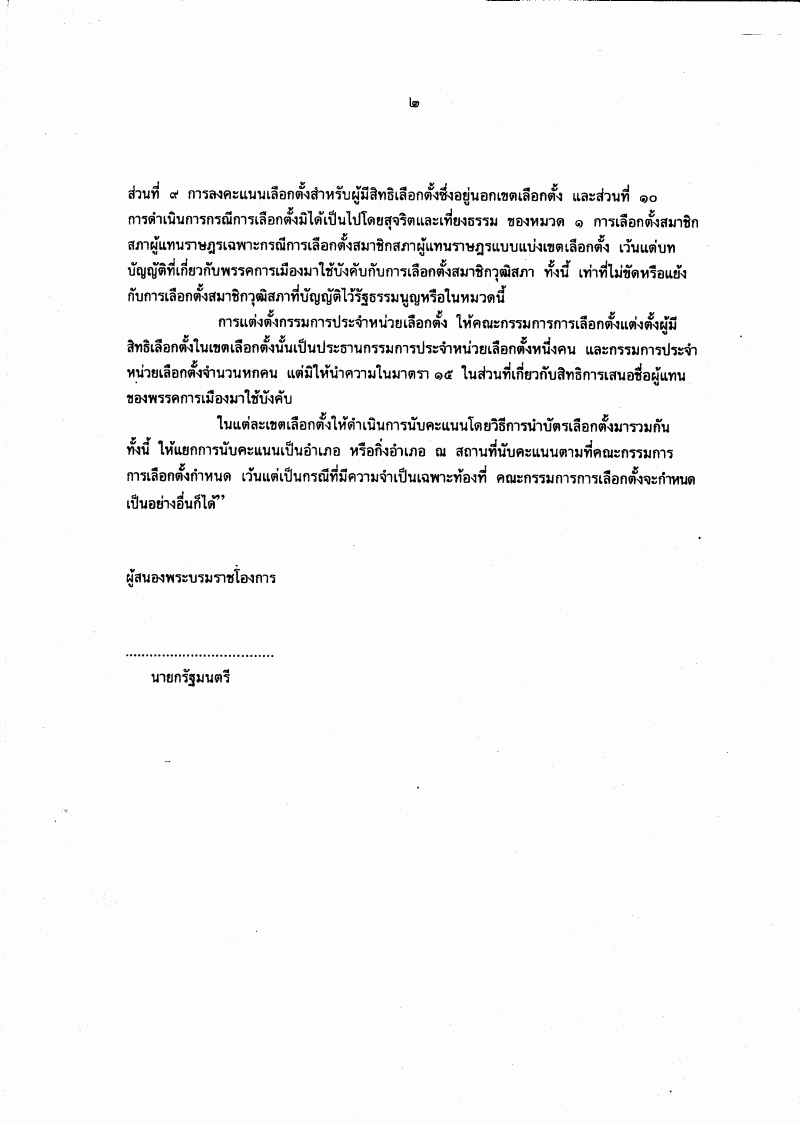 ๒
ส่วนที่ ๙ การลงคะแนนเลือกตั้งสำหรับผู้มีสิทธิเลือกตั้งซึ่งอยู่นอกเขตเลือกตั้ง และส่วนที่ ๑๐
การดำเนินการกรณีการเลือกตั้งมิได้เป็นไปโดยสุจริตและเที่ยงธรรม ของหมวด ๑ การเลือกตั้งสมาชิก
สภาผู้แทนราษฎรเฉพาะกรณีการเลือกตั้งสมาชิกสภาผู้แทนราษฎรแบบแบ่งเขตเลือกตั้ง เว้นแต่บท
บัญญัติที่เกี่ยวกับพรรคการเมืองมาใช้บังคับกับการเลือกตั้งสมาชิกวุฒิสภา ทั้งนี้ เท่าที่ไม่ขัดหรือแย้ง
กับการเลือกตั้งสมาชิกวุฒิสภาที่บัญญัติไว้รัฐธรรมนูญหรือในหมวดนี้
การแต่งตั้งกรรมการประจำหน่วยเลือกตั้ง ให้คณะกรรมการการเลือกตั้งแต่งตั้งผู้มี
สิทธิเลือกตั้งในเขตเลือกตั้งนั้นเป็นประธานกรรมการประจำหน่วยเลือกตั้งหนึ่งคน และกรรมการประจำ
หน่วยเลือกตั้งจำนวนหกคน แต่มิให้นำความในมาตรา ๑๕ ในส่วนที่เกี่ยวกับสิทธิการเสนอชื่อผู้แทน
ของพรรคการเมืองมาใช้บังคับ
ในแต่ละเขตเลือกตั้งให้ดำเนินการนับคะแนนโดยวิธีการนำบัตรเลือกตั้งมารวมกัน
ทั้งนี้ ให้แยกการนับคะแนนเป็นอำเภอ หรือกิ่งอำเภอ ณ สถานที่นับคะแนนตามที่คณะกรรมการ
การเลือกตั้งกำหนด เว้นแต่เป็นกรณีที่มีความจำเป็นเฉพาะท้องที่ คณะกรรมการการเลือกตั้งจะกำหนด
เป็นอย่างอื่นก็ได้”
ผู้สนองพระบรมราชโองการ
......................................
นายกรัฐมนตรี